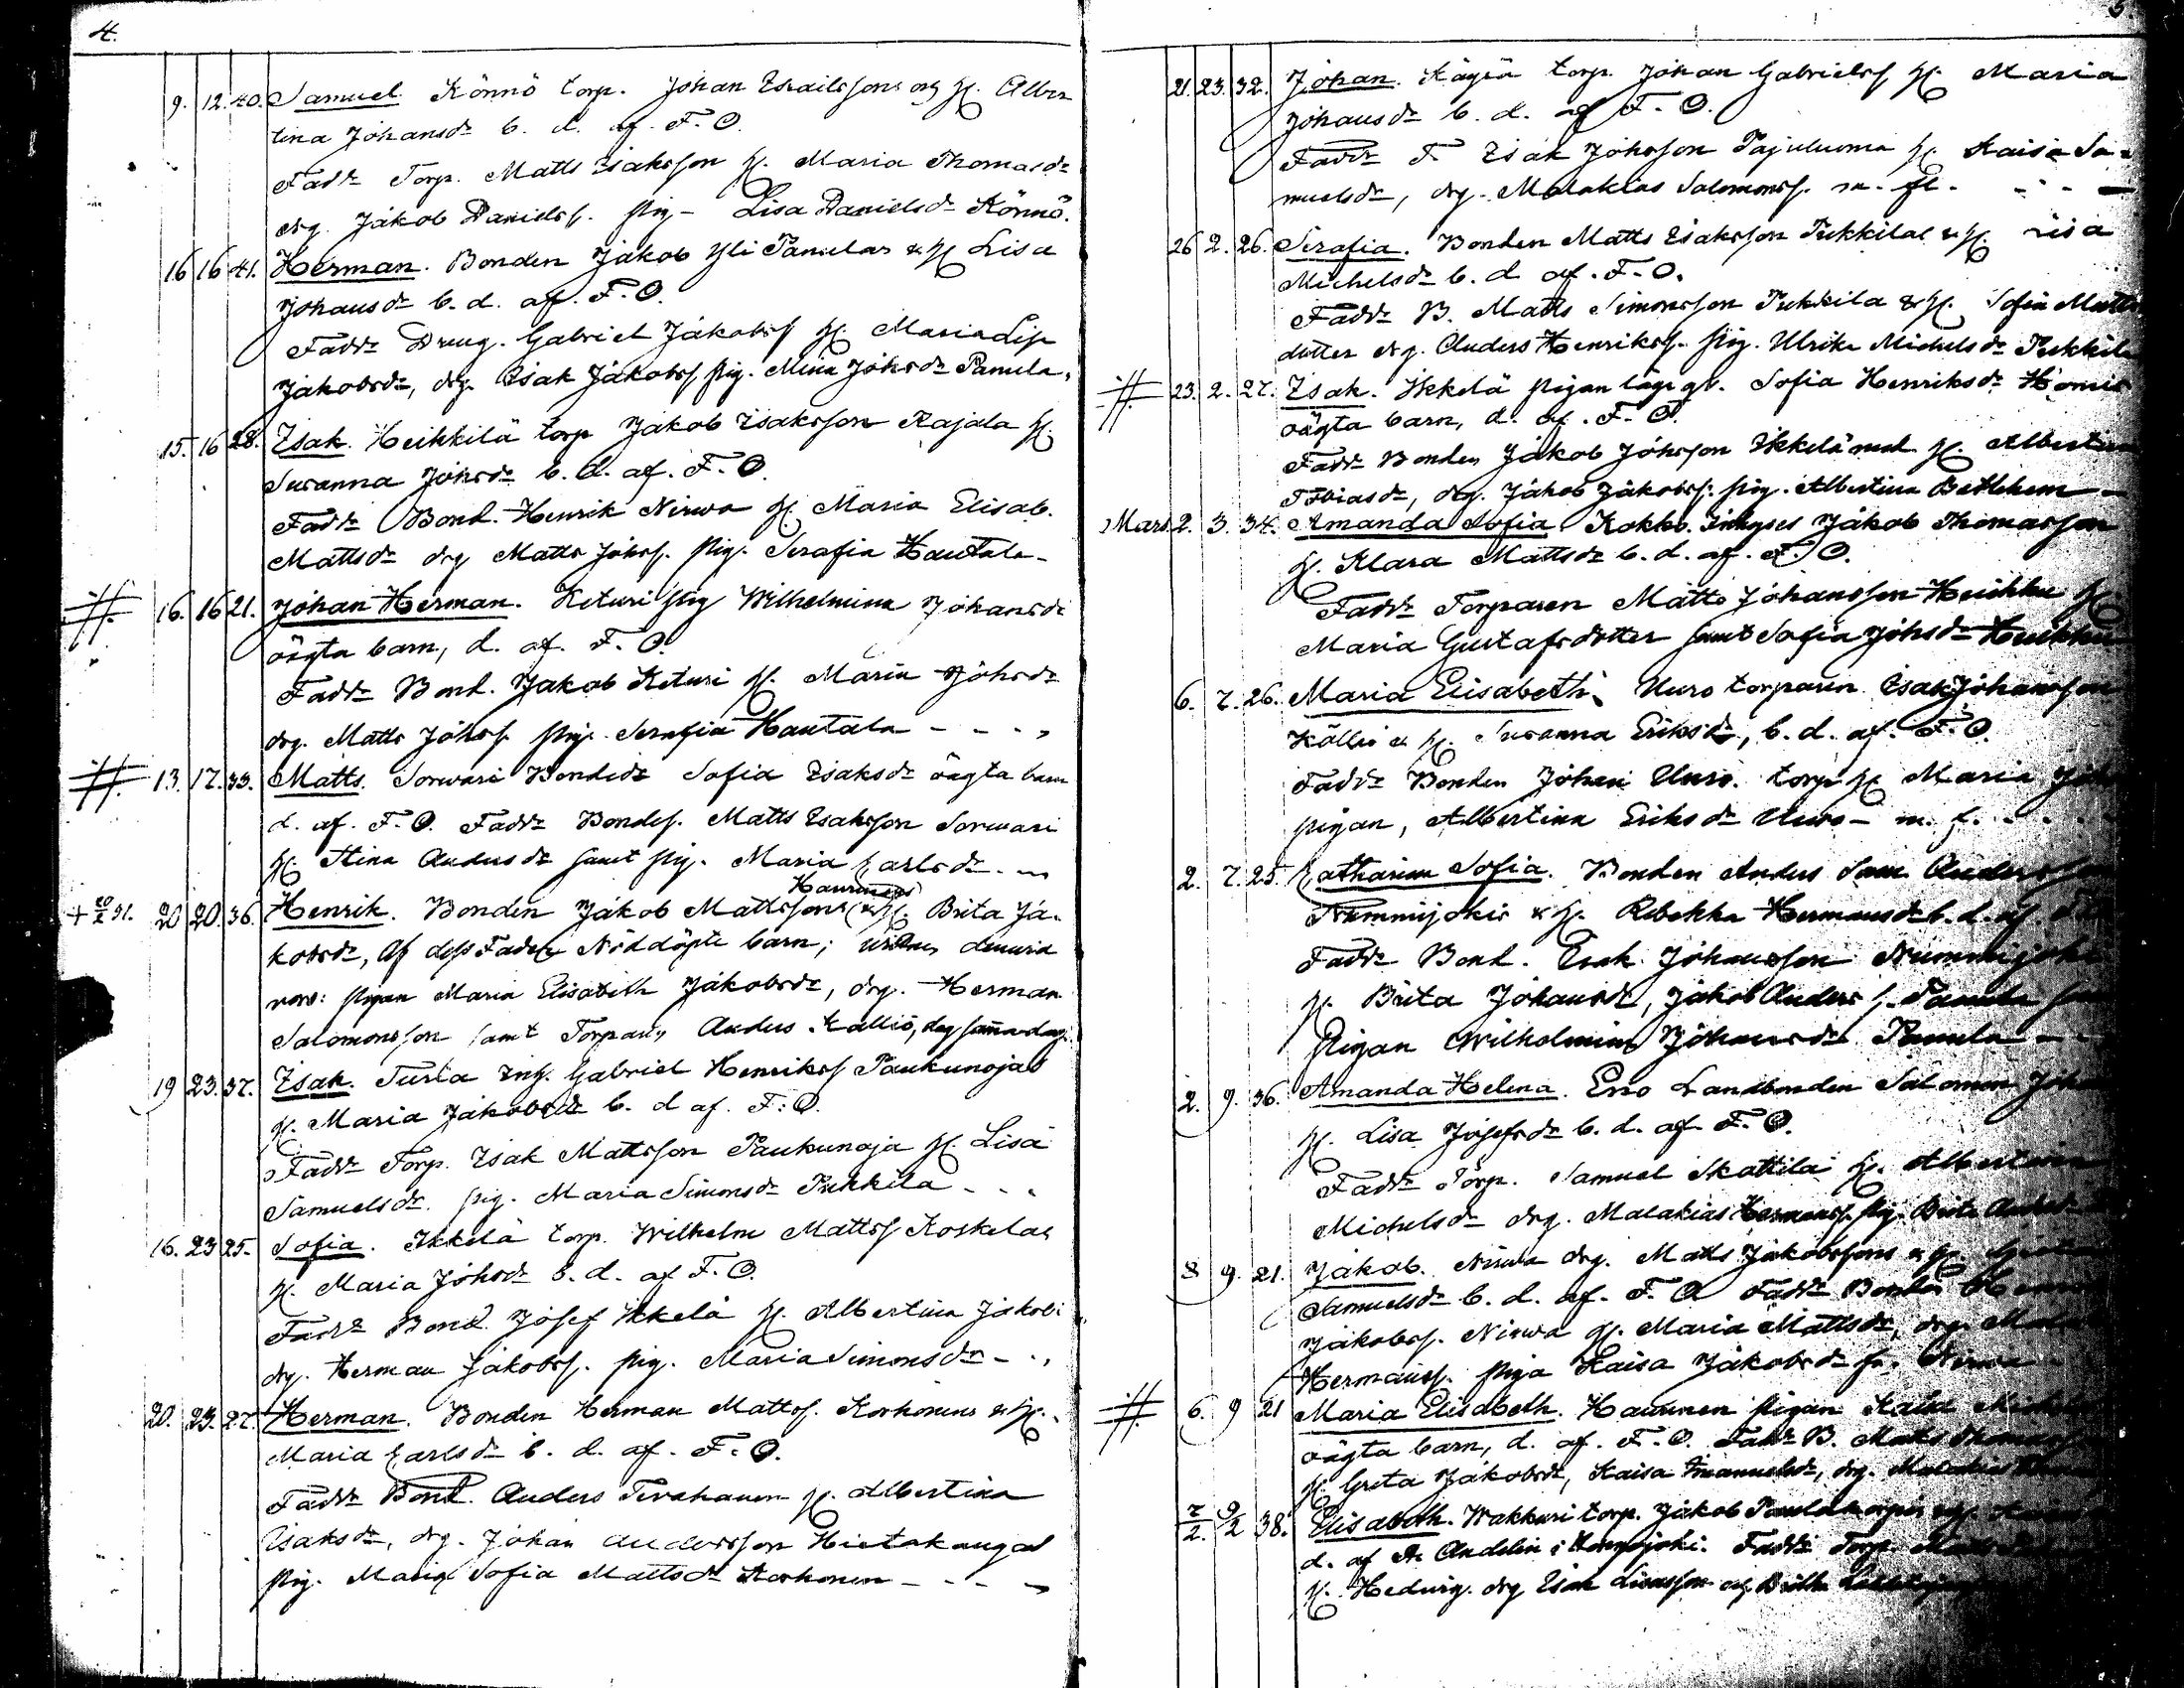 4.
9. 12. 40. Samuel. Könnö torp. Johan Esrailssons och H. Alber
tina Johansdr b. d. af. F. O.
Faddr Torp. Matts Isaksson H. Maria Thomasdr
drg. Jakob Danielss. pig – Lisa Danielsdr Könnö.
16 16 41. Herman. Bonden Jakob Yli Panulas & H. Lisa
Johansdr b. d. af. F. O.
Faddr Dreng. Gabriel Jakobss H. Maria Lisa
Jakobsdr, drg. Isak Jakobss pig. Mina Johsdr Panula,
15. 16 28. Isak. Heikkilä torp Jakob Isaksson Rajala H.
Susanna Johsdr b. d. af. F. O.
Faddr Bond. Henrik Nirwa H. Maria Elisab.
Mattsdr drg Matts Johss. pig. Serafia Hautala –
16. 16 21. Johan Herman. Keturi pig Wilhelmina Johansdr
oägta barn, d. af. F. O.
Faddr Bond. Jakob Keturi H. Maria Johsdr
drg. Matts Johss. pig. Serafia Hautala – – – ,
13. 17. 33. Matts. Sorwari Bondedr Sofia Isaksdr oägta barn
d. af. F. O. Faddr Bondes. Matts Isaksson Sorwari
H. Stina Andersdr samt pig. Maria Carlsdr. –
+ 20/2 91. 20 20. 36. Henrik. Bonden Jakob Mattssons (Haurunens) & H. Brita Ja-
kobsdr, Af dess Fader Nöddöpte barn;
narv: pigan Maria Elisabeth Jakobsdr, drg. Herman
Salomonsson samt Torparn Anders Kallio, dag samma dag.
19 23. 37. Isak. Turla Inh. Gabriel Henrikss Paukunojas
H. Maria Jakobsdr b. d af. F. O.
Faddr Torp. Isak Mattsson Paukunoja H. Lisa
Samuelsdr. pig. Maria Simonsdr Pukkila – – –
16. 23 25. Sofia. Ikkelä torp. Wilhelm Mattss Koskelas
H. Maria Johsdr b. d. af F. O.
Faddr Bond. Josef Ikkelä H. Albertina Jakobs
drg. Herman Jakobss. pig. Maria Simonsdr – – ,
20. 23. 27. Herman. Bonden Herman Mattss. Korhonens & H.
Maria Carlsdr b. d. af. F. O.
Faddr Bond. Anders Tervahauen H. Albertina
Isaksdr, drg. Johan Andersson Hietakangas
pig. Maria Sofia Mattsdr Korhonen – – –
5.
21. 23. 32. Johan. Käyrä torp. Johan Gabrielss H. Maria
Johansdr b. d. af F. O.
Faddr T. Isak Johsson Pajuluoma H. Kaisa Sa-
muelsdr, drg. Malakias Salomonss. m. fl. – – –
26 2. 26. Serafia. Bonden Matts Isaksson Pukkilas & H. Lisa
Michelsdr b. d. af. F. O.
Faddr B. Matts Simonsson Pukkila & H. Sofia Matts
dotter drg. Anders Henrikss. pig. Ulrika Michelsdr Pukkila
23. 2. 27. Isak. Ikkelä pigan Sofia Henriksdr
oägta barn, d. af. F. O.
Faddr Bonden Jakob Johsson Ikkelä med H. Albertina
Tobiasdr, drg. Jakob Jakobss. pig. Albertina Bethlehem –
Mars. 2. 3. 34. Amanda Sofia. Kokko. Inhyses Jakob Thomasson
H. Klara Mattsdr b. d. af. F. O.
Faddr Torparen Matts Johansson Heikku H.
Maria Gustafsdotter samt Sofia Johsdr Heikku
6. 7. 26. Maria Elisabeth. Uuro torparen Isak Johansson
Kallio & H. Susanna Eriksdr, b. d. af. F. O.
Faddr Bonden Johan Uuro. torp H. Maria Joh
pigan, Albertina Eriksdr Uuro – m. f. – –
2. 7. 25. Catharina Sofia. Bonden Anders Sam Andersson
Nummijokis & H. Rebekka Hermansdr b. d. af
Faddr Bond. Isak Johansson Nummijoki
H. Brita Johansdr, Jakob Anders s. Panula
Pigan Wilhelmina Johansdr Panula –
2. 9. 36. Amanda Helena. Ero Landbonden Salomon Joh
H. Lisa Josefsdr b. d. af F. O.
Faddr Torp. Samuel Skattila H. Albertina
Michelsdr drg. Malakias Hermanss. pig. Brita Anders
8 9. 21. Jakob. Nirwa drg. Matts Jakobssons & H.
Samuelsdr b. d. af. F. O. Faddr Bonden
Jakobss. Nirwa H. Maria Mattsdr, drg.
Hermanss. piga Kaisa Jakobsdr fr. Nirwa –
6. 9 21 Maria Elisabeth. Haurunen pigan Kaisa
oägta barn, d. af. F. O. Faddr B. Matts
H. Greta Jakobsdr, Kaisa Emanuelsdr, drg. Malakias
7/2. 9/2 38. Elisabeth. Wakkuri torp. Jakob
d. af A. Andelin i Kurejoki. Faddr Torp.
H. Hedvig. drg Isak